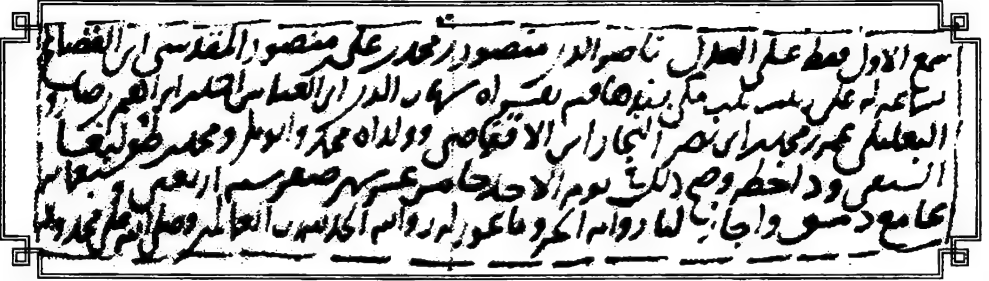 سمع الاول فقط على العدل ناصر الدين منصور بن محمد بن على بن منصور المقدسى ابن القضاعى
بسماعه له على زينب بنت مكى بسندها فيه بقراءة شهاب الدين ابى العباس احمد بن ابراهيم
البعلبكى عمر بن محمد بن ابى نصر النجار ابن الاقفاصى وولداه محمد وابو بكر ومحمد بن طولبغا
السيفى وذا خطه وصح ذلك يوم الاحد خامس عشر شهر صفر سنة اربعين و سبعمائة
بجامع دمشق واجاز لنا رواية الجزء وما يجوز له روايته الحمد لله رب العالمين وصلى الله على محمد وآله